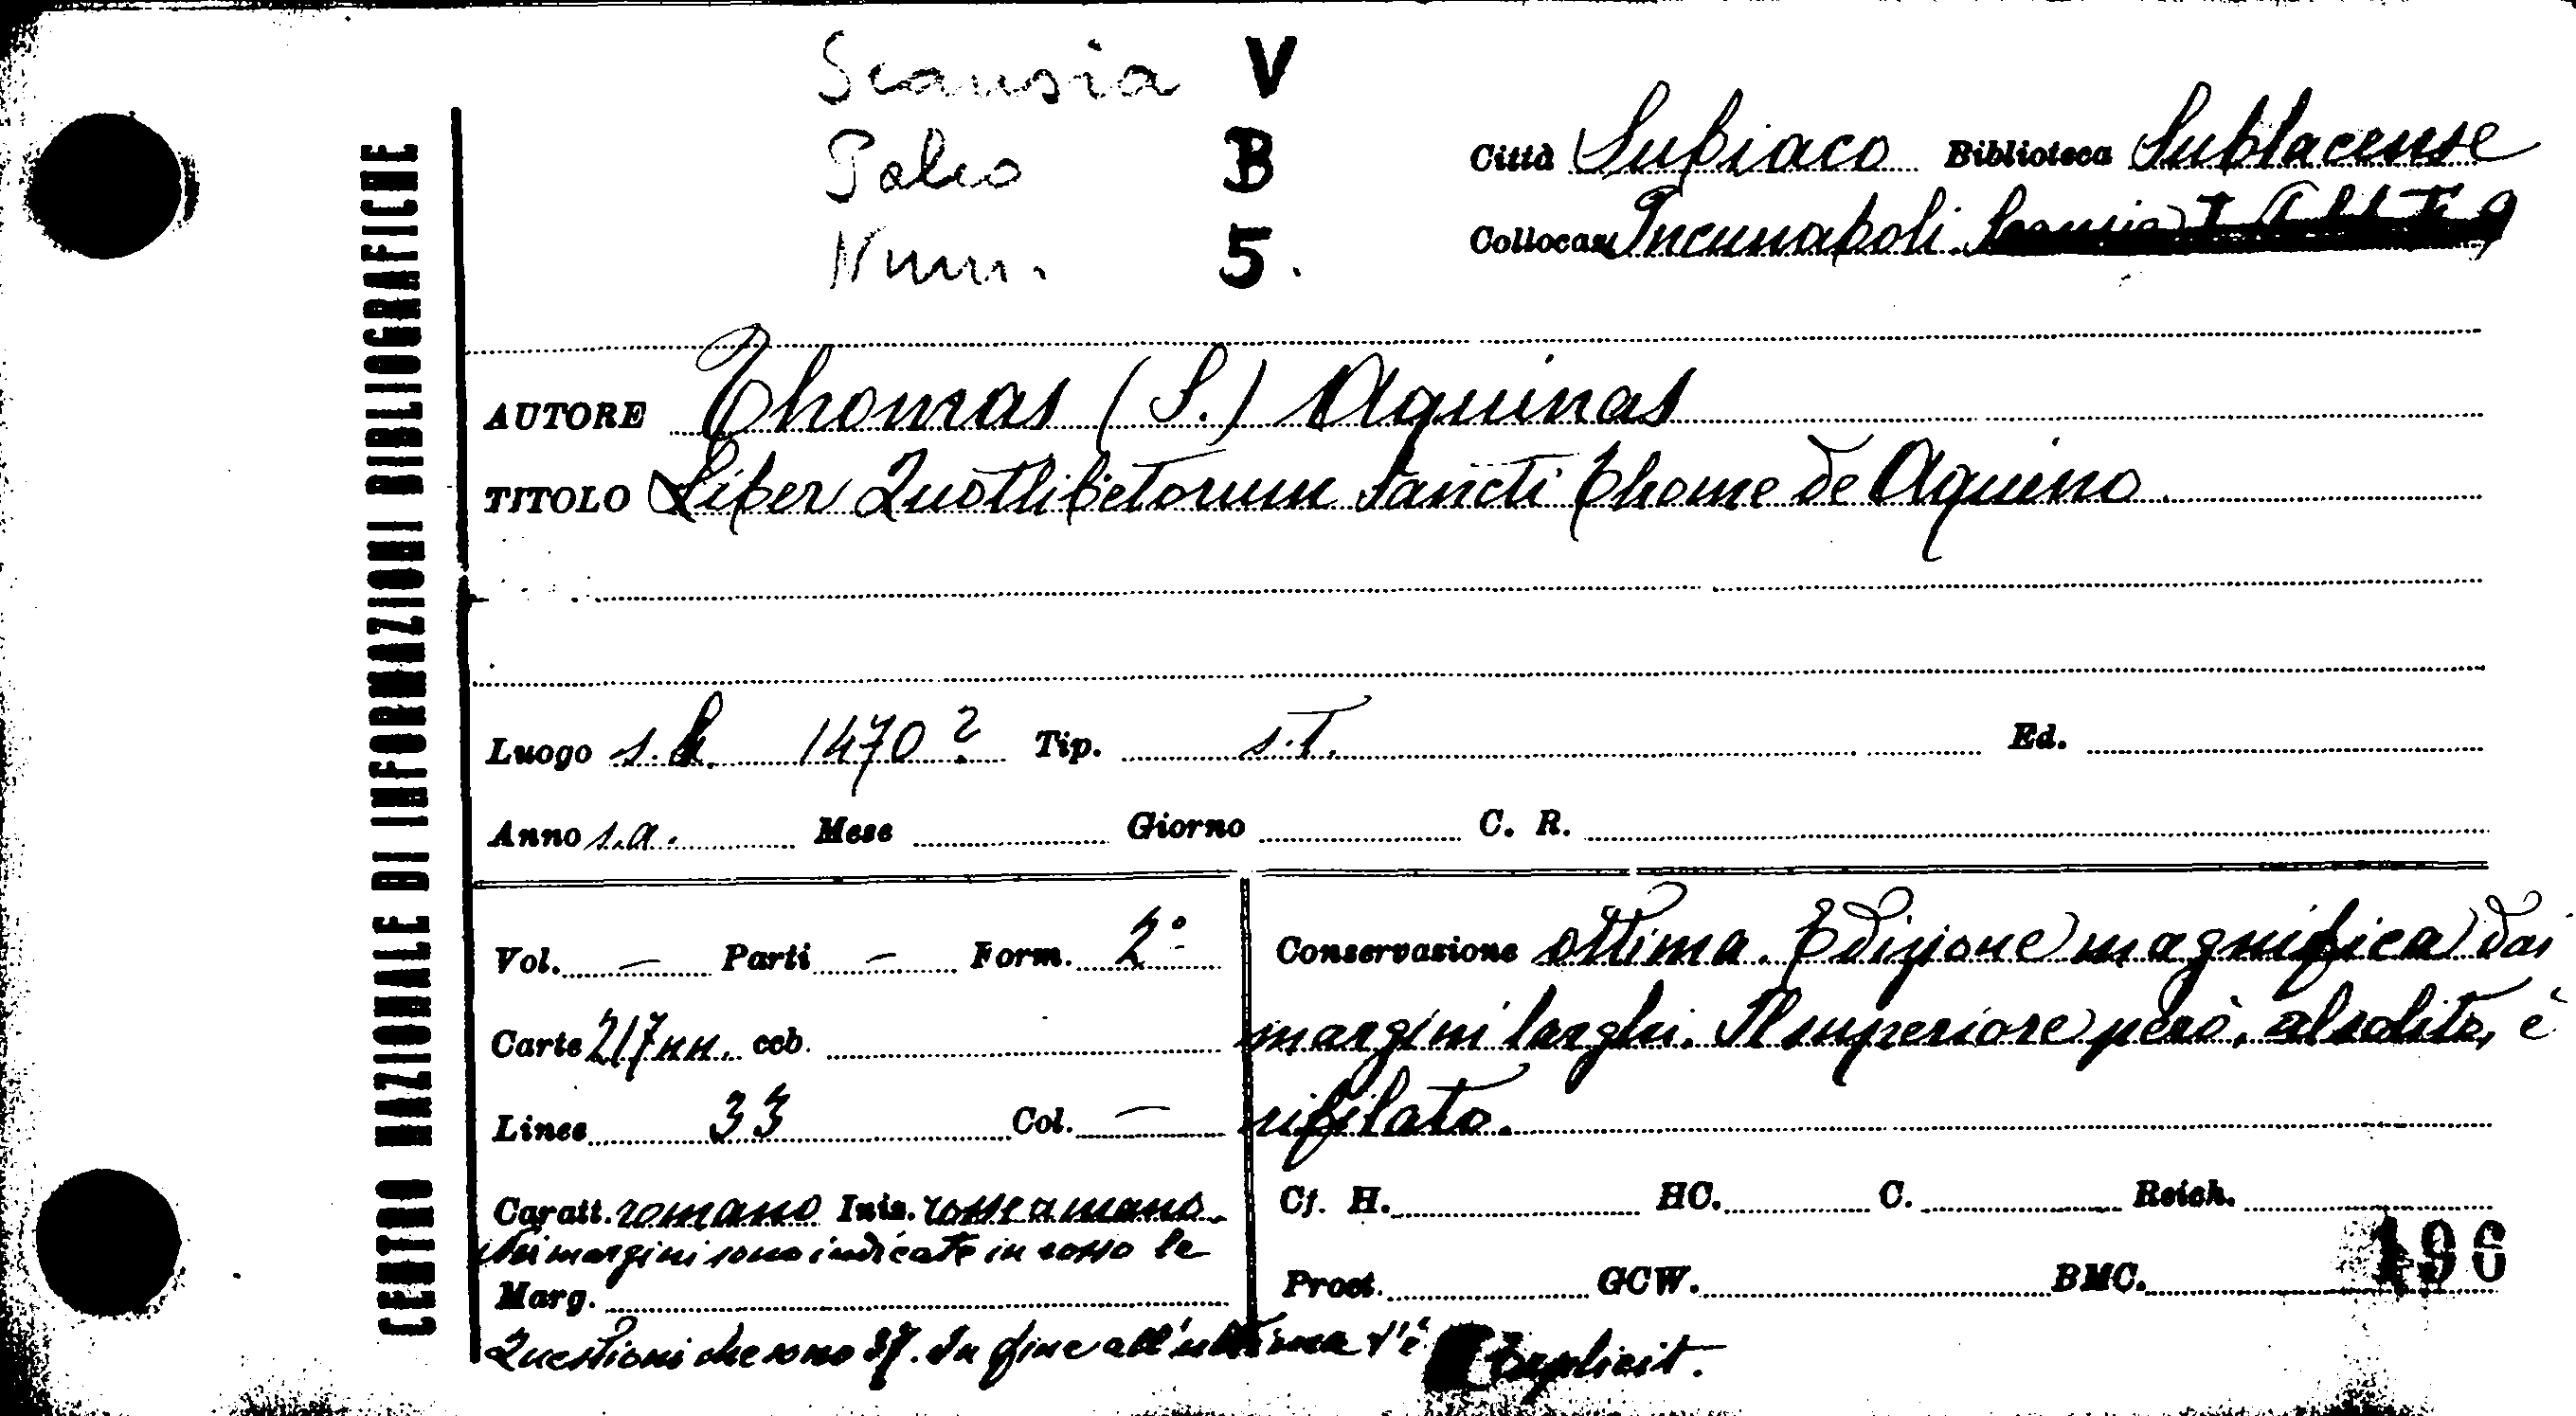 Scansia V
Palco B
Num. 5.
Città Sublaco Biblioteca Sublacense
Collocaz. Incunaboli
CENTRO NAZIONALE DI INFORMAZIONI BIBLIOGRAFICHE
AUTORE Thomas (S.) Aquinas
TITOLO Liber Quotlibetorum sancti Thome de Aquino.
Luogo s.l. 1470? Tip. s.T. Ed.
Anno s.a. Mese Giorno C. R.
Vol. — Parti — Form. 2°
Carte 217 nn. ccb.
Linee 33 Col. —
Caratt. romano Iniz. rosse a mano.
Nei margini sono indicate in rosso le
Marg.
Questioni che sono 37. In fine all'ultima v'è Explicit.
Conservazione ottima. Edizione magnifica dai
margini larghi. Il superiore però, al solito, è
rifilato.
Cf. H. HC. C. Reich.
Proct. GCW. BMC. 196